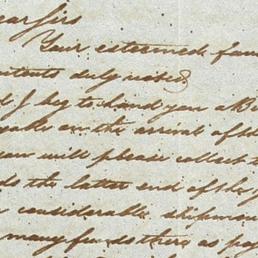 ear Sirs
Your esteemed fav
ntents duly noted
d I beg to hand you a
on the arrival of th
will please collect t
ds the latter end of the
considerable shipmen
many funds there as po